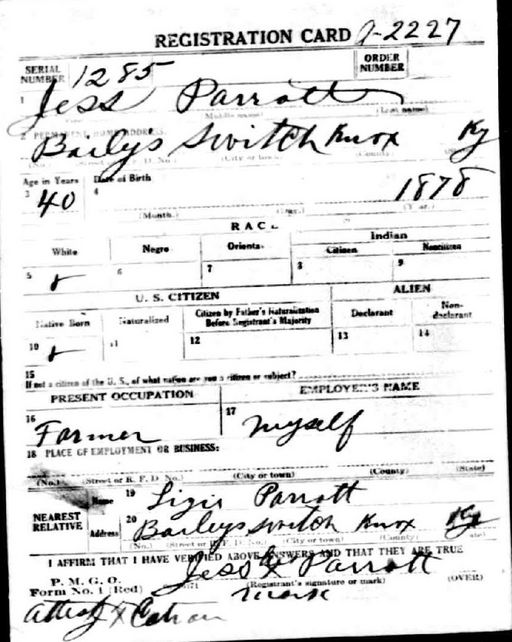 REGISTRATION CARD A-2227
SERIAL NUMBER 1285 ORDER NUMBER
1 Jess Parrott
(Middle name) (Last name)
2 PERMANENT HOME ADDRESS:
Bailys Switch Knox Ky
(No.) (Street or R. F. D. No.) (City or town) (County)
Age in Years Date of Birth
3 40 4 1878
(Month.) (Day.) (Year.)
RACE
White Negro Oriental Indian
Citizen Noncitizen
5 6 7 8 9
U. S. CITIZEN ALIEN
Native Born Naturalized Citizen by Father's Naturalization Before Registrant's Majority Declarant Non-declarant
10 11 12 13 14
15
If not a citizen of the U. S., of what nation are you a citizen or subject?
PRESENT OCCUPATION EMPLOYER'S NAME
16 Farmer 17 myself
18 PLACE OF EMPLOYMENT OR BUSINESS:
(No.) (Street or R. F. D. No.) (City or town) (County) (State)
NEAREST RELATIVE Name 19 Lizie Parrott
Address 20 Baileys switch Knox Ky
(No.) (Street or R. F. D. No.) (City or town) (County) (State)
I AFFIRM THAT I HAVE VERIFIED ABOVE ANSWERS AND THAT THEY ARE TRUE
Jess X Parrott
P. M. G. O.
Form No. 1 (Red) (Registrant's signature or mark) (OVER)
mark